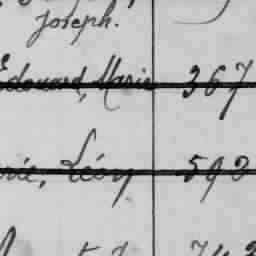 Joseph.
Edouard, Marie 367
rie, Léon 593